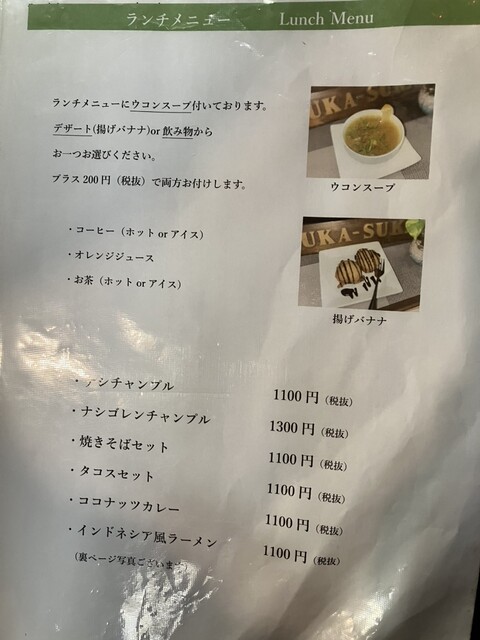 ランチメニュー Lunch Menu
ランチメニューにウコンスープ付いております。
デザート(揚げバナナ)or 飲み物から
お一つお選びください。
プラス200円（税抜）で両方お付けします。
UKA-SUK
ウコンスープ
・コーヒー（ホット or アイス）
・オレンジジュース
・お茶（ホット or アイス）
UKA-SUK
揚げバナナ
・ナシチャンプル 1100円（税抜）
・ナシゴレンチャンプル 1300円（税抜）
・焼きそばセット 1100円（税抜）
・タコスセット 1100円（税抜）
・ココナッツカレー 1100円（税抜）
・インドネシア風ラーメン 1100円（税抜）
（裏ページ写真ございます）